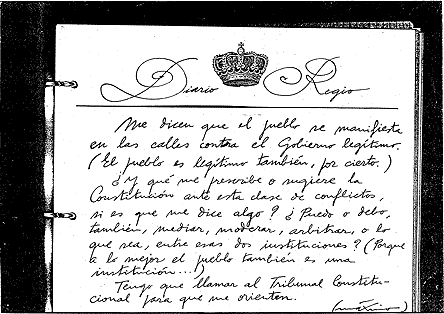 Diario Regio
Me dicen que el pueblo se manifiesta
en las calles contra el Gobierno legítimo.
(El pueblo es legítimo también, por cierto.)
¿Y qué me prescribe o sugiere la
Constitución ante esta clase de conflictos,
si es que me dice algo? ¿Puedo o debo,
también, mediar, moderar, arbitrar, o lo
que sea, entre esas dos instituciones? (Porque
a lo mejor el pueblo también es una
institución...)
Tengo que llamar al Tribunal Constitu-
cional para que me orienten.
(máximo)